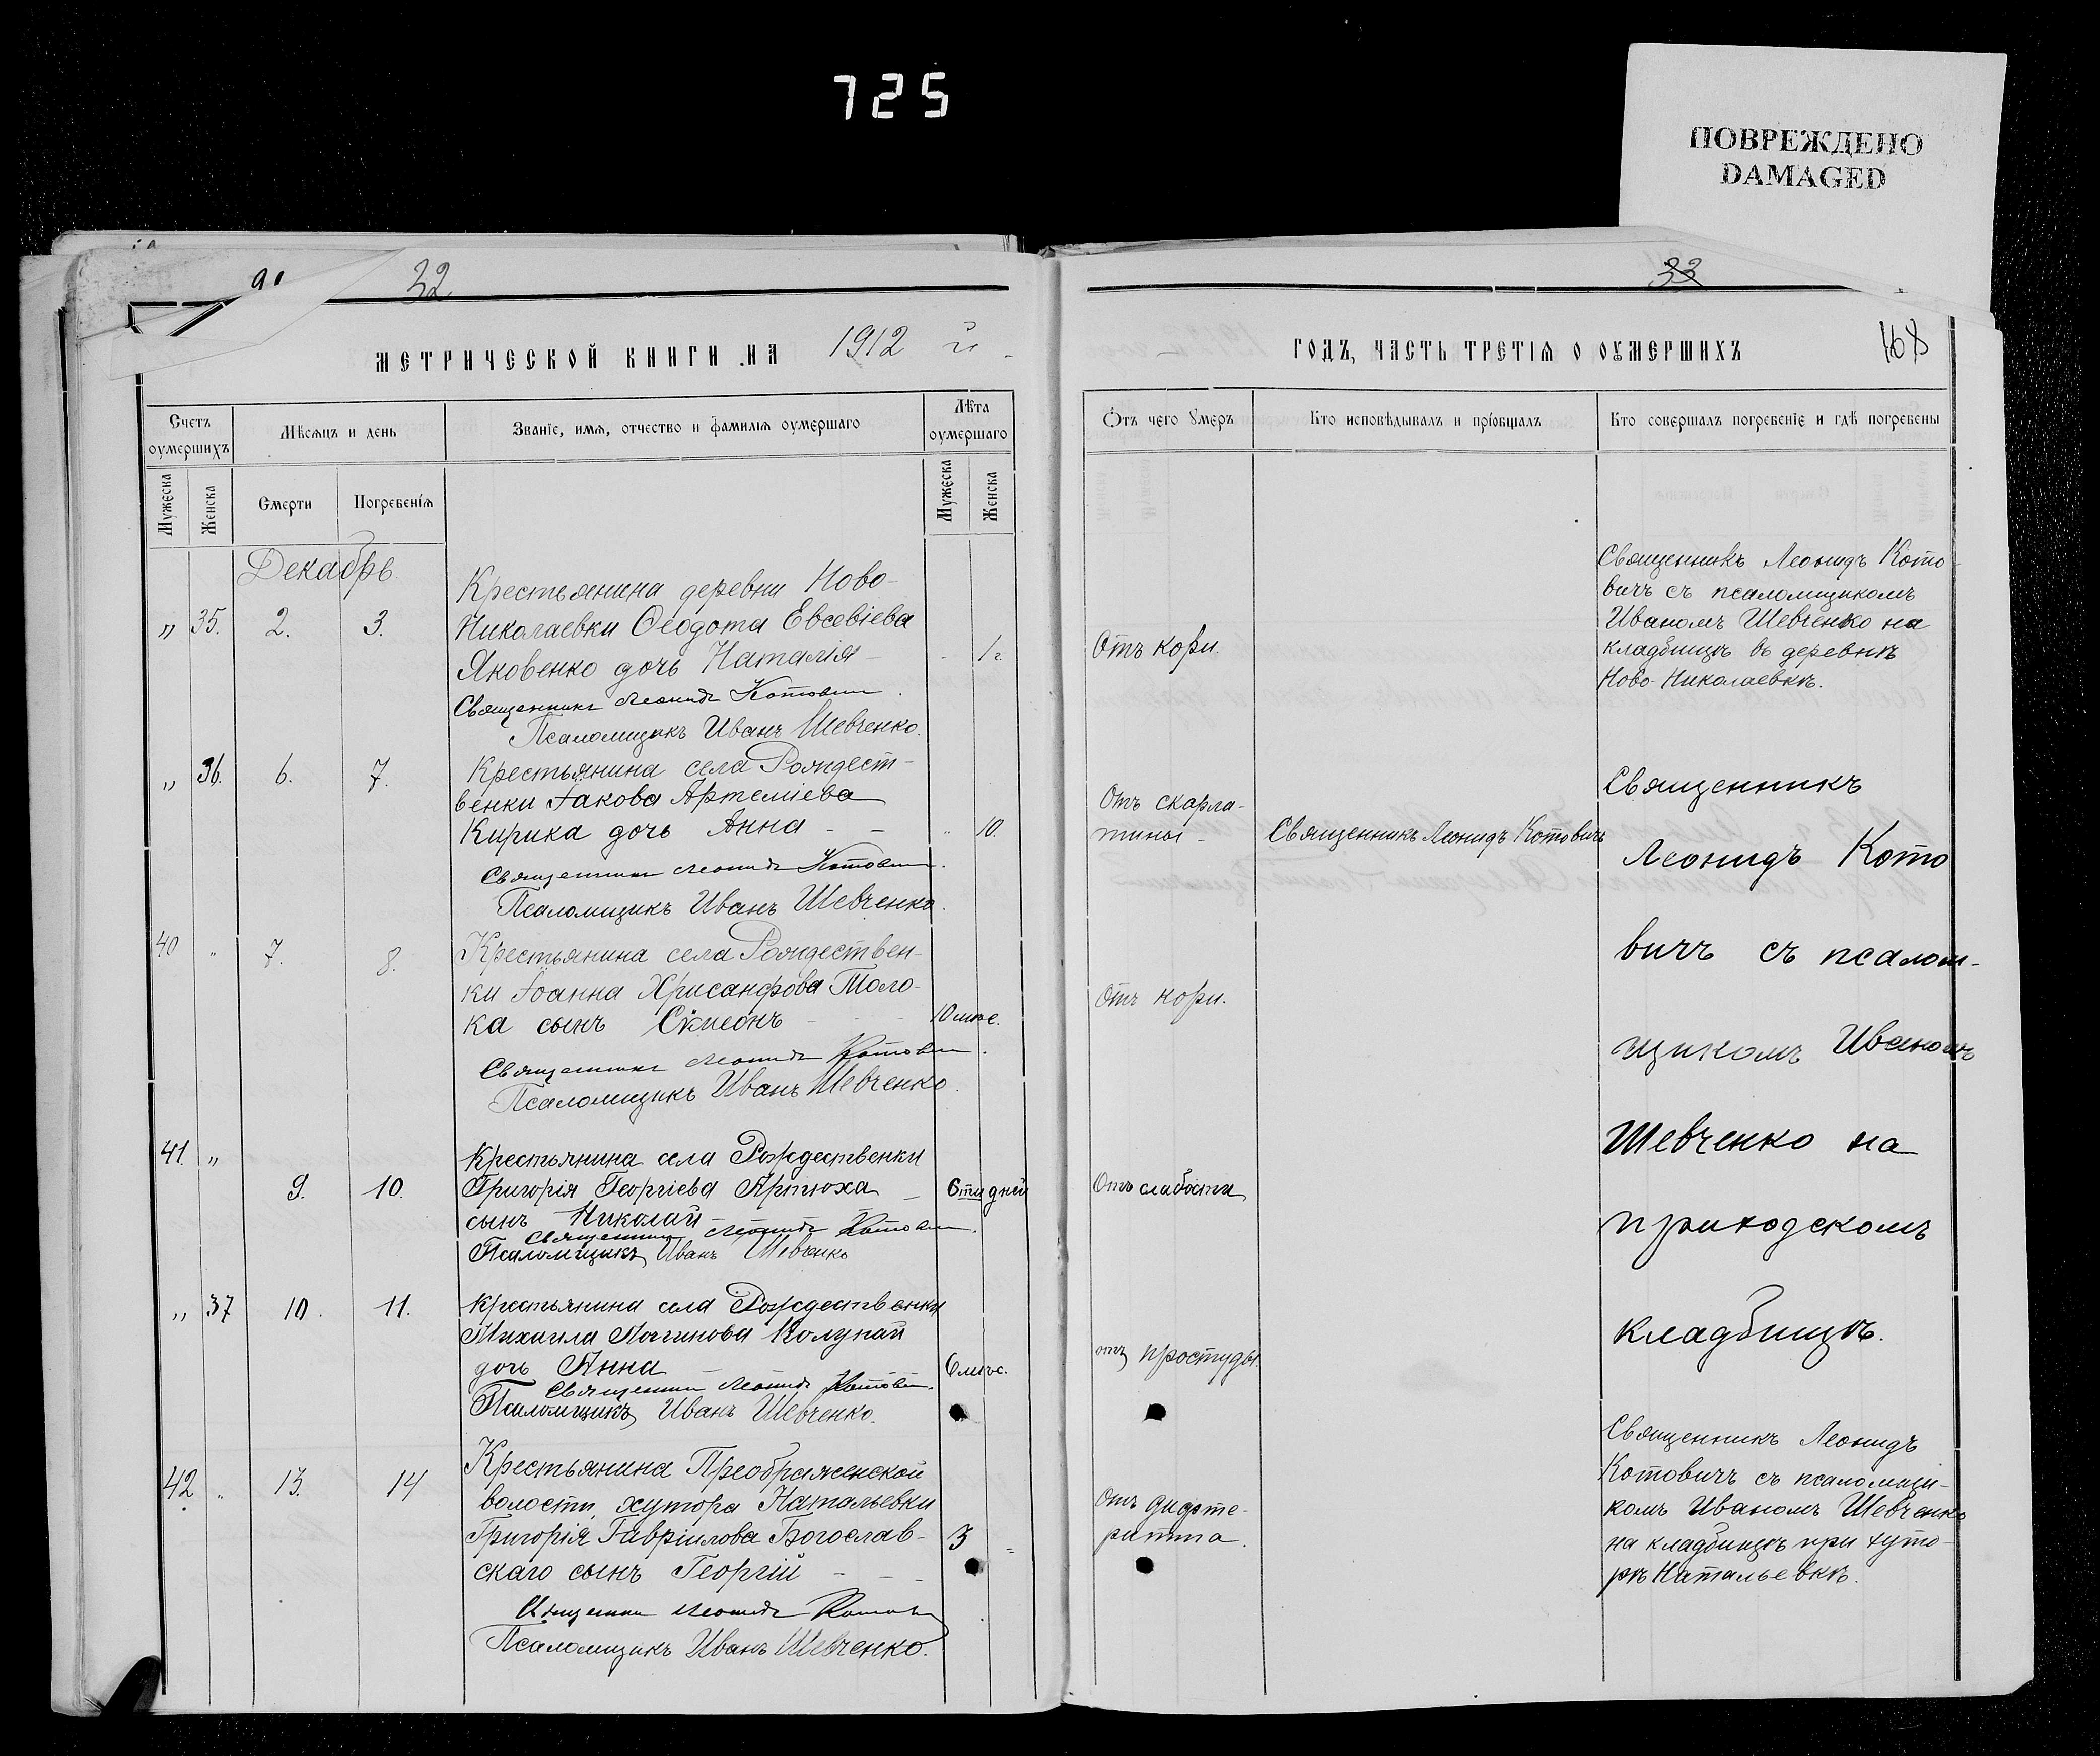 725
ПОВРЕЖДЕНО
DAMAGED
32
МЕТРИЧЕСКОЙ КНИГИ НА 1912 й
Счетъ оумершихъ
Мѣсяцъ и день
Званіе, имя, отчество и фамилія оумершаго
Лѣта оумершаго
Мужеска
Женска
Смерти
Погребенія
Мужеска
Женска
Декабрь
„ 35. 2. 3.
Крестьянина деревни Ново-
Николаевки Ѳеодота Евсевіева
Яковенко дочь Наталія
1 г
Священникъ Леонидъ Котовичъ
Псаломщикъ Иванъ Шевченко.
„ 36. 6. 7.
Крестьянина села Рождест-
венки Іакова Артеміева
Кирика дочь Анна - -
„ 10.
Священникъ Леонидъ Котовичъ
Псаломщикъ Иванъ Шевченко.
40 „ 7. 8.
Крестьянина села Рождествен-
ки Іоанна Хрисанфова Моло-
ка сынъ Сѵмеонъ
10 мѣс.
Священникъ Леонидъ Котовичъ
Псаломщикъ Иванъ Шевченко.
41. „ 9. 10.
Крестьянина села Рождественки
Григорія Георгіева Артюха
сынъ Николай
6ти дней
Священникъ Леонидъ Котовичъ
Псаломщикъ Иванъ Шевченко
„ 37 10. 11.
Крестьянина села Рождественки
Михаила Логгинова Колупай
дочь Анна
6 мѣс.
Священникъ Леонидъ Котовичъ
Псаломщикъ Иванъ Шевченко.
42 „ 13. 14
Крестьянина Преображенской
волости, хутора Натальевки
Григорія Гавріилова Богослав-
скаго сынъ Георгій - - -
3
Священникъ Леонидъ Котовичъ
Псаломщикъ Иванъ Шевченко.
33
168
ГОДЪ, ЧАСТЬ ТРЕТІЯ О ОУМЕРШИХЪ
Ѿтъ чего Умеръ
Кто исповѣдывалъ и пріобщалъ
Кто совершалъ погребеніе и гдѣ погребены
Отъ кори.
Священникъ Леонидъ Кото-
вичъ съ псаломщикомъ
Иваномъ Шевченко на
кладбищѣ въ деревнѣ
Ново-Николаевкѣ.
Отъ скарла-
тины
Священникъ Леонидъ Котовичъ
Отъ кори.
Отъ слабости
отъ простуды.
Священникъ
Леонидъ Кото
вичъ съ псалом-
щикомъ Иваномъ
Шевченко на
приходскомъ
кладбищѣ.
Отъ дифте-
ритта.
Священникъ Леонидъ
Котовичъ съ псаломщи-
комъ Иваномъ Шевченко
на кладбищѣ при хуто-
рѣ Натальевкѣ.